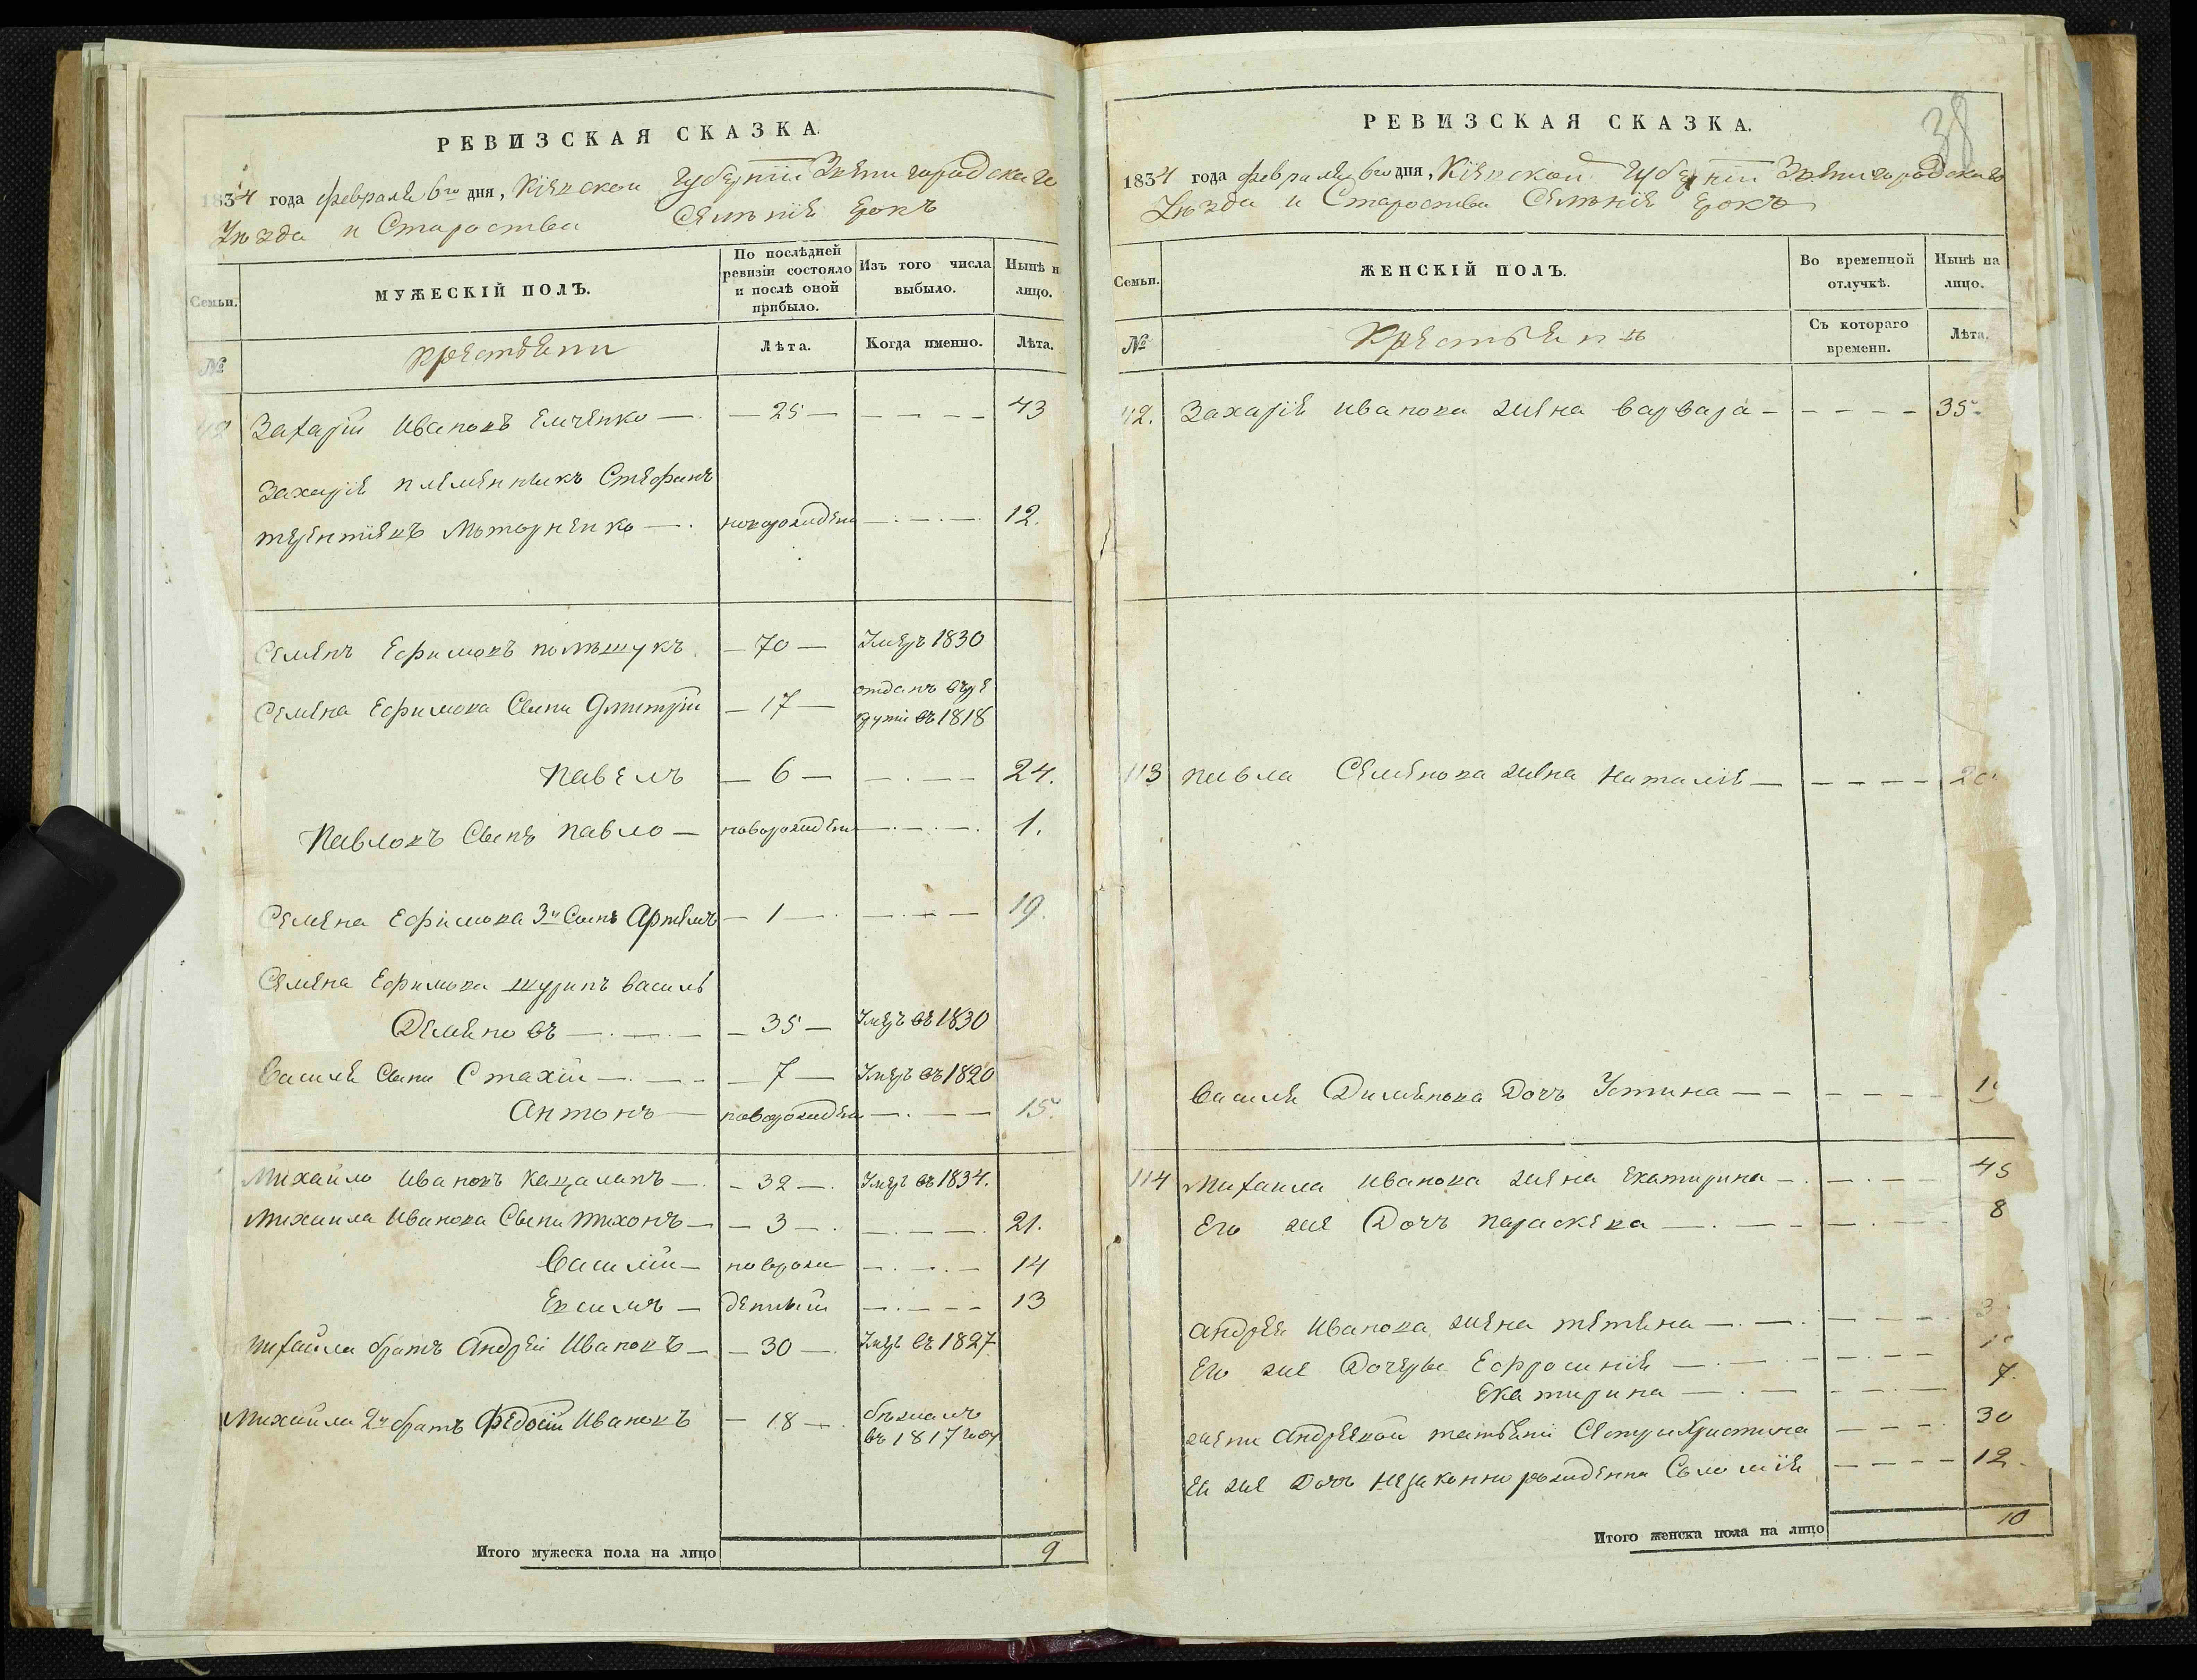 РЕВИЗСКАЯ СКАЗКА.
1834 года февраля 6го дня, Кіевской Губерніи Звенигородскаго
Уѣзда и Староства Селеніе Ерокъ
Семьи.
МУЖЕСКІЙ ПОЛЪ.
По послѣдней ревизіи состояло и послѣ оной прибыло.
Изъ того числа выбыло.
Нынѣ н лицо.
№
Крестьяни
Лѣта.
Когда именно.
Лѣта.
Захарій Ивановъ Емченко — 25 — 43
Захарія племенникъ Стефанъ
терентіевъ Моторненко — новорожденъ — 12.
Семенъ Ефимовъ полѣщукъ — 70 — Умеръ 1830
отданъ въ ре
Семена Ефимова Сыни Дмитрій — 17 — круты въ 1818
Павелъ — 6 — 24.
Павловъ Сынъ Павло — новорожден — 1.
Семена Ефимова 3й Сынъ Артемъ — 1 — 19.
Семена Ефимова шуринъ Василь
Деменовъ — 35 — Умеръ въ 1830
Василя Сыни Стахій — 7 — Умеръ въ 1820
Антонъ — новорожден — 15.
Михайло Ивановъ Кацаланъ — 32 — Умеръ въ 1834.
Михаила Иванова Сыни Тихонъ — 3 — 21.
Василій — новорож — 14
— денный — 13
Михайла братъ Андрей Ивановъ — 30 — Умеръ въ 1827
Михайла 2й братъ Федосій Ивановъ — 18 — бѣжалъ
въ 1817 году
Итого мужеска пола на лицо 9
38
РЕВИЗСКАЯ СКАЗКА.
1834 года февраля 6го дня, Кіевской Губерніи Звенигородскаго
Уѣзда и Староства Селеніе Ерокъ
Семьи.
ЖЕНСКІЙ ПОЛЪ.
Во временной отлучкѣ.
Нынѣ на лицо.
№
Съ котораго времени.
Лѣта.
Захарія Иванова жена Варвара — 35.
113 Павла Семенова жена Наталія —
Василя Дименова Дочъ Устина —
114 Михаила Иванова жена Екатирина — 45
Его же Дочъ Параскева — 8
Андрея Иванова жена —
Его же Дочеры Ефросинія —
Екатирина — 7.
жени Андреевой Сестра Христина — 30
Ея же Дочъ незаконно рожденна Соломія — 12
Итого женска пола на лицо 10